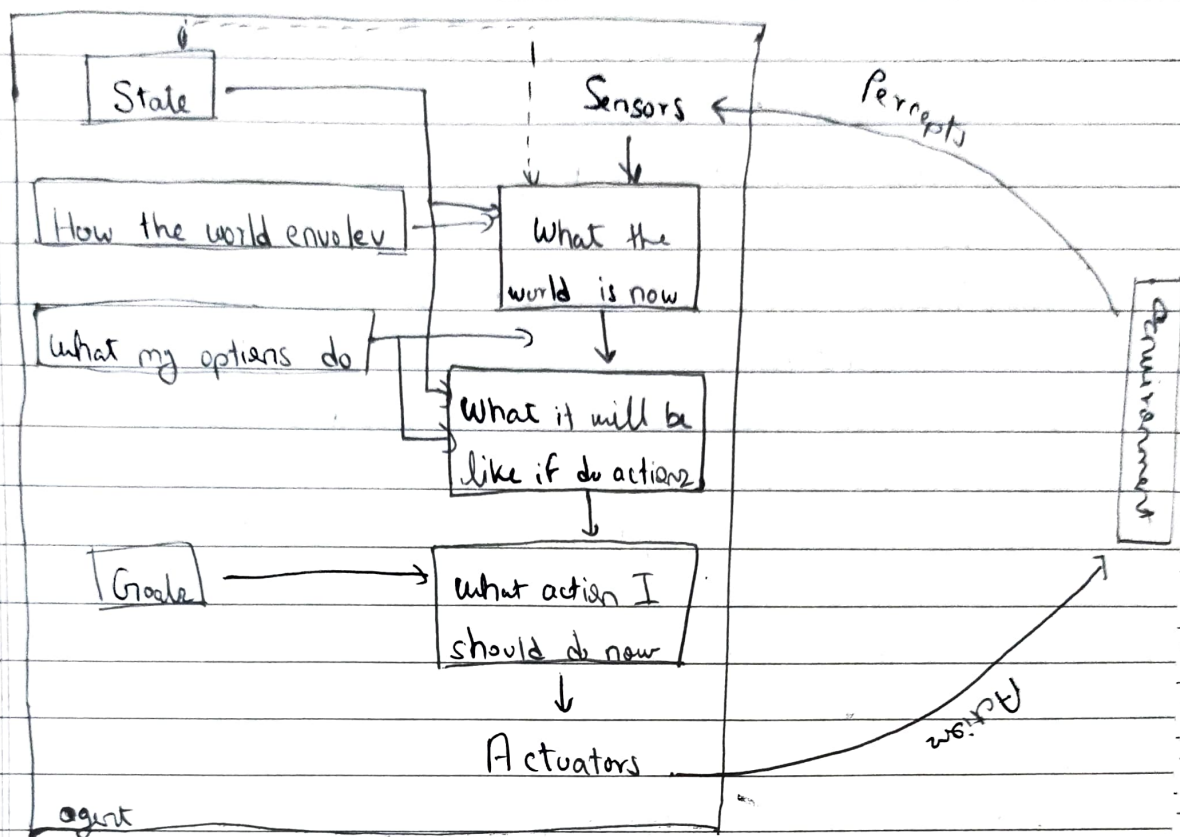 State
Sensors
Percepts
How the world envolev
What the
world is now
What my options do
What it will be
like if do actions
Environment
Goals
What action I
should do now
Actions
Actuators
agent